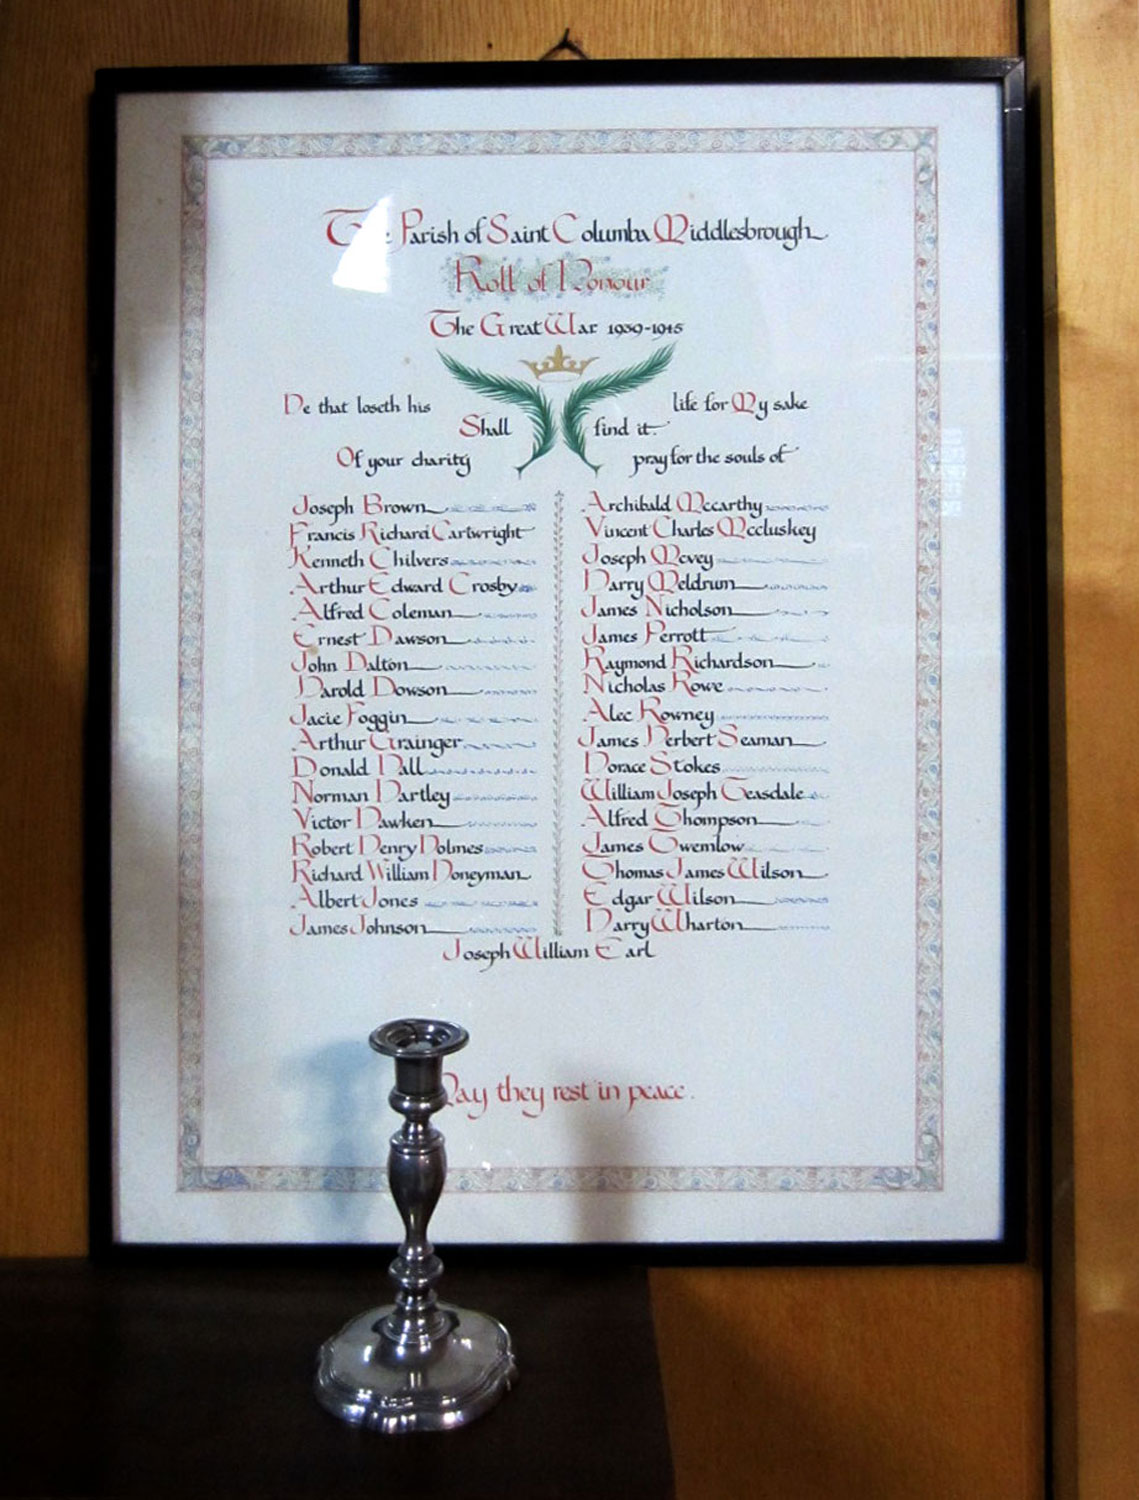 The Parish of Saint Columba Middlesbrough
Roll of Honour
The Great War 1939-1945
He that loseth his life for My sake
Shall find it.
Of your charity pray for the souls of
Joseph Brown
Francis Richard Cartwright
Kenneth Chilvers
Arthur Edward Crosby
Alfred Coleman
Ernest Dawson
John Dalton
Harold Dowson
Jacie Foggin
Arthur Grainger
Donald Hall
Norman Hartley
Victor Hawken
Robert Henry Holmes
Richard William Honeyman
Albert Jones
James Johnson
Archibald Mccarthy
Vincent Charles Mccluskey
Joseph Mcvey
Harry Meldrum
James Nicholson
James Perrott
Raymond Richardson
Nicholas Rowe
Alec Rowney
James Herbert Seaman
Horace Stokes
William Joseph Teasdale
Alfred Thompson
James Twemlow
Thomas James Wilson
Edgar Wilson
Harry Wharton
Joseph William Earl
May they rest in peace.